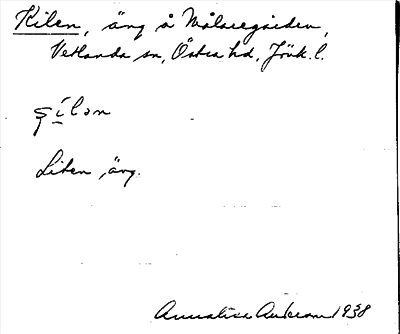 Kilen, äng å Målaregården,
Vetlanda sn, Östra hd, Jönk. l.
ꞩílən
Liten äng.
Annalisa Anderson 1938